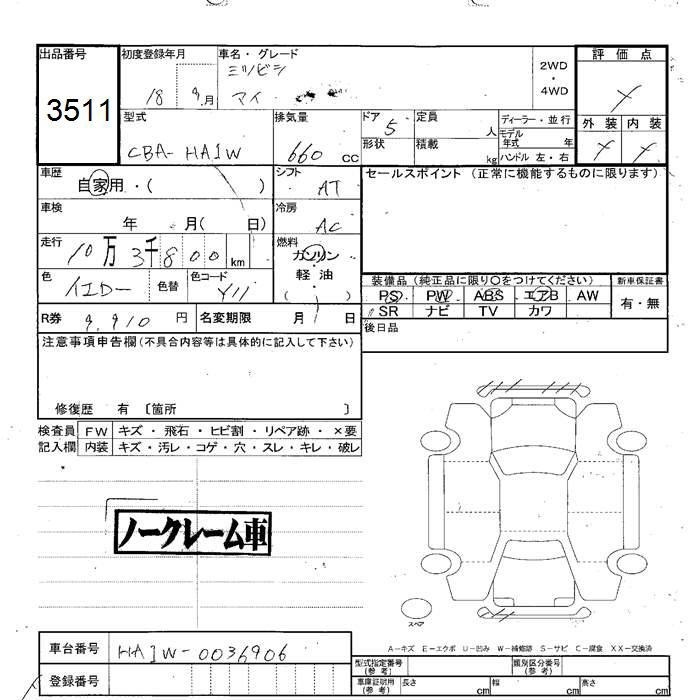 出品番号
3511
初度登録年月
18 9月
車名・グレード
ミツビシ
マイ
2WD
・
4WD
評価点
外装 内装
型式
CBA-HA1W
排気量
660 cc
ドア
5
形状
定員
人
積載
kg
ディーラー・並行
モデル
年式 年
ハンドル 左・右
車歴
自家用・( )
シフト
AT
セールスポイント (正常に機能するものに限ります)
車検
年 月( 日)
冷房
AC
走行
10万3千800km
燃料
ガソリン
軽油
( )
色
イエロー
色替
色コード
Y11
装備品 (純正品に限り○をつけてください)
PS PW ABS エアB AW
SR ナビ TV カワ
新車保証書
有・無
R券 9,910 円
名変期限 月 日
後日品
注意事項申告欄(不具合内容等は具体的に記入して下さい)
修復歴 有 〔箇所 〕
検査員
記入欄
FW キズ・飛石・ヒビ割・リペア跡・×要
内装 キズ・汚レ・コゲ・穴・スレ・キレ・破レ
ノークレーム車
スペア
A-キズ E-エクボ U-凹み W-補修跡 S-サビ C-腐食 XX-交換済
車台番号 HA1W-0036906
登録番号
型式指定番号
(参考)
類別区分番号
(参考)
車庫証明用
(参考)
長さ cm 幅 cm 高さ cm